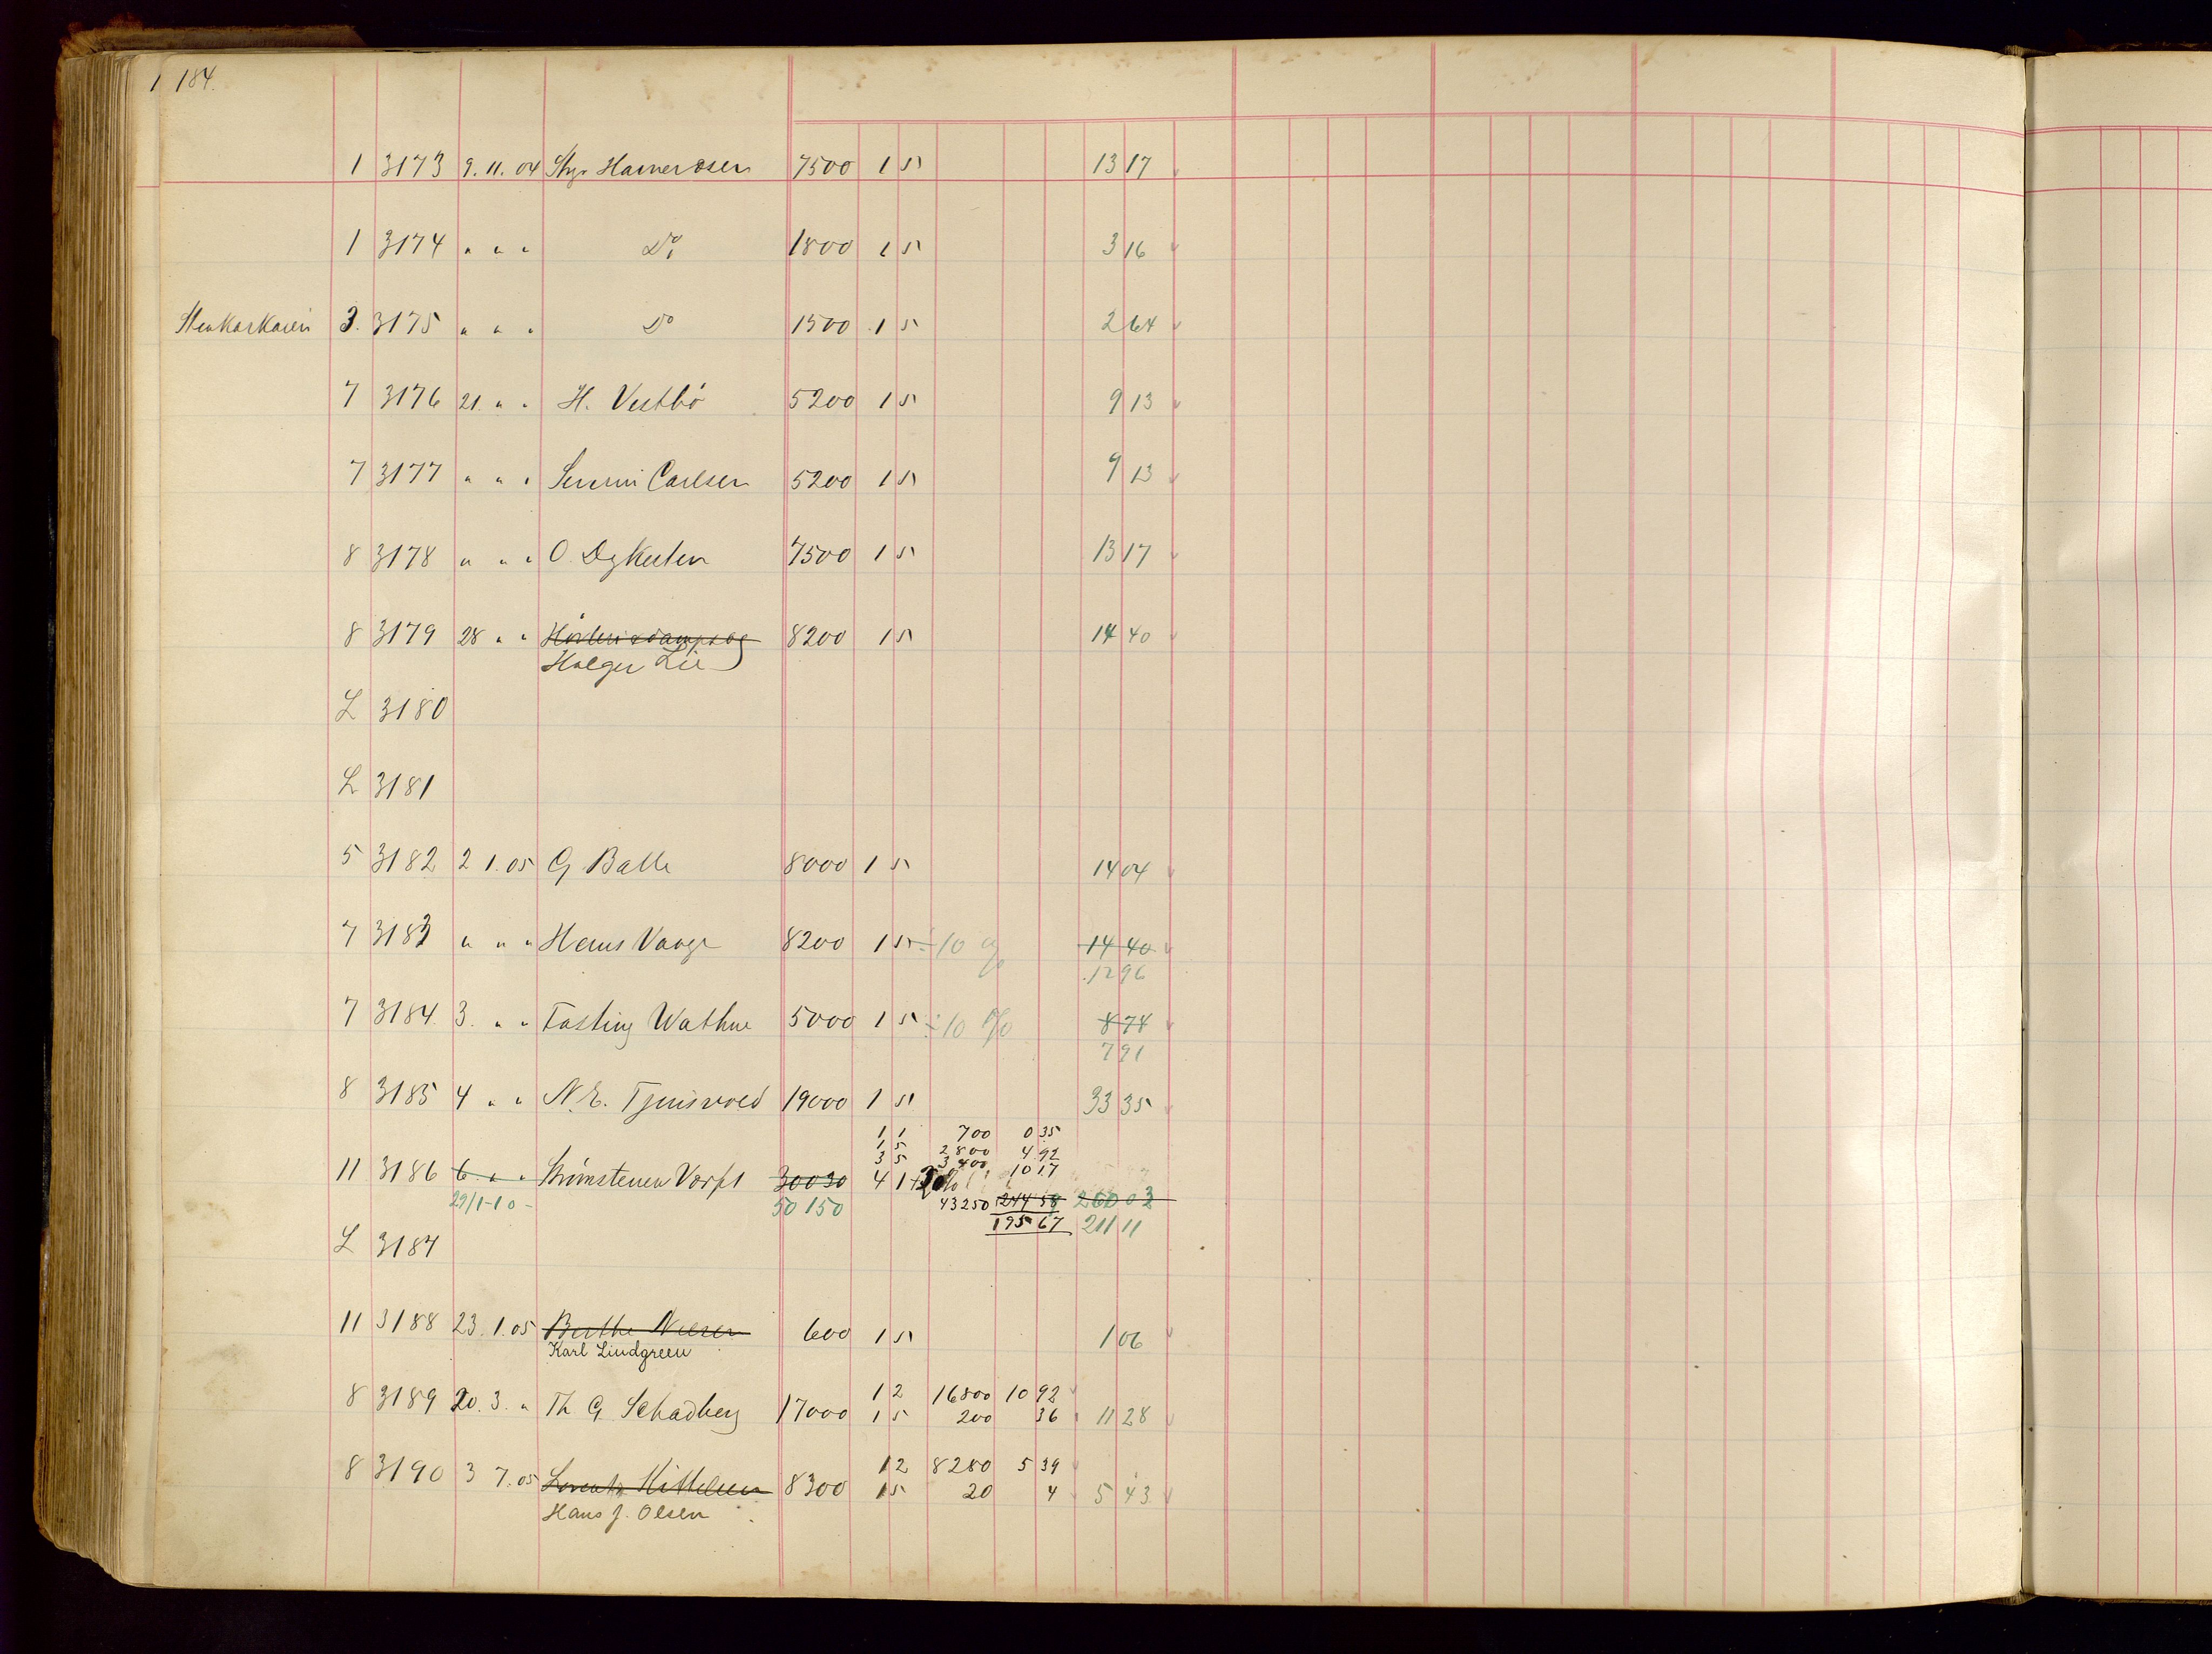 1 184.
1 3173 9. 11. 04 7500 1 5 13 17
1 3174 " " " Do 1800 1 5 3 16
3. 3175 " " " Do 1500 1 5 2 64
7 3176 21. " " H. Vestbö 5200 1 5 9 13
7 3177 " " " Carlsen 5200 1 5 9 13
8 3178 " " " O. 7500 1 5 13 17
8 3179 28 " " 8200 1 5 14 40
Holger Lie
L 3180
L 3181
5 3182 2 1. 05 G Balle 8000 1 5 14 04
7 3183 " " " Hans Vaage 8200 1 5 ÷ 10 % 14 40
12 96
7 3184. 3. " " Fasting Wathne 5000 1 5 ÷ 10 % 8 78
7 91
8 3185 4 " " N. E. 19000 1 5 33 35
1 1 700 0 35
1 5 2800 4 92
3 5 3400 10 17
11 3186 6. " " Strömstenen Værft 30030 4 1
29/1-10- 50150 43250 244 58 260 03
195 67 211 11
L 3187
11 3188 23. 1. 05 Berthe Nilsen 600 1 5 1 06
Karl Lindgreen
1 2 16800 10 92
8 3189 20. 3. " Th G. Schadberg 17000 1 5 200 36 11 28
1 2 8280 5 39
8 3190 3 7. 05 Lorentz Kittelsen 8300 1 5 20 4 5 43
Hans J. Olsen